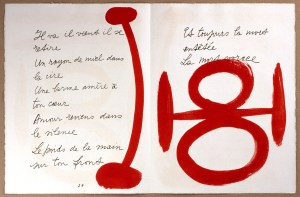 Il va il vient il se
retire
Un rayon de miel dans
la cire
Une larme amère à
ton cœur
Amour dans
le silence
Le poids de la main
sur ton front
Et toujours la mort
entêtée
La mort vorace